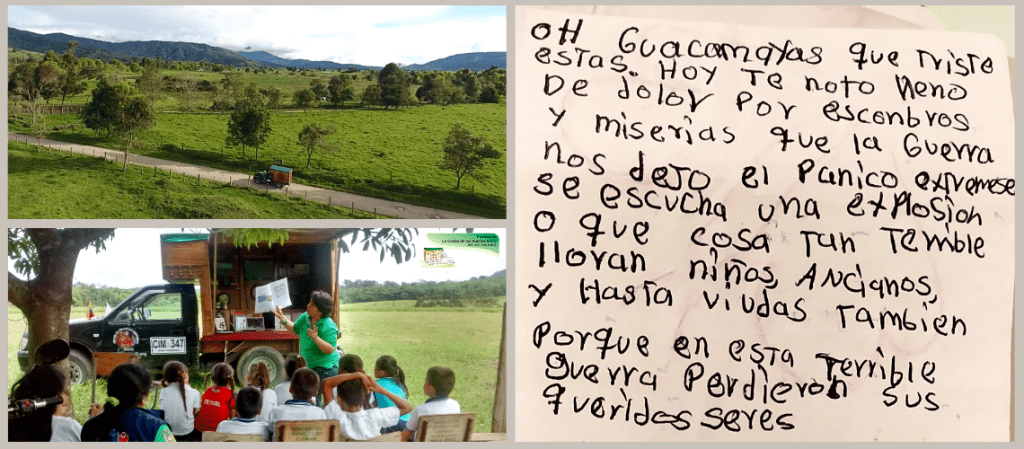 CIM 347
OH Guacamayas que Triste
estas. Hoy Te noto lleno
De dolor Por esconbros
Y miserias que la Guerra
nos dejo el Panico extremese
se escucha una explosion
O que cosa Tan Terrible
lloran niños, Ancianos,
y Hasta viudas Tambien
Porque en esta Terrible
guerra Perdieron sus
queridos seres